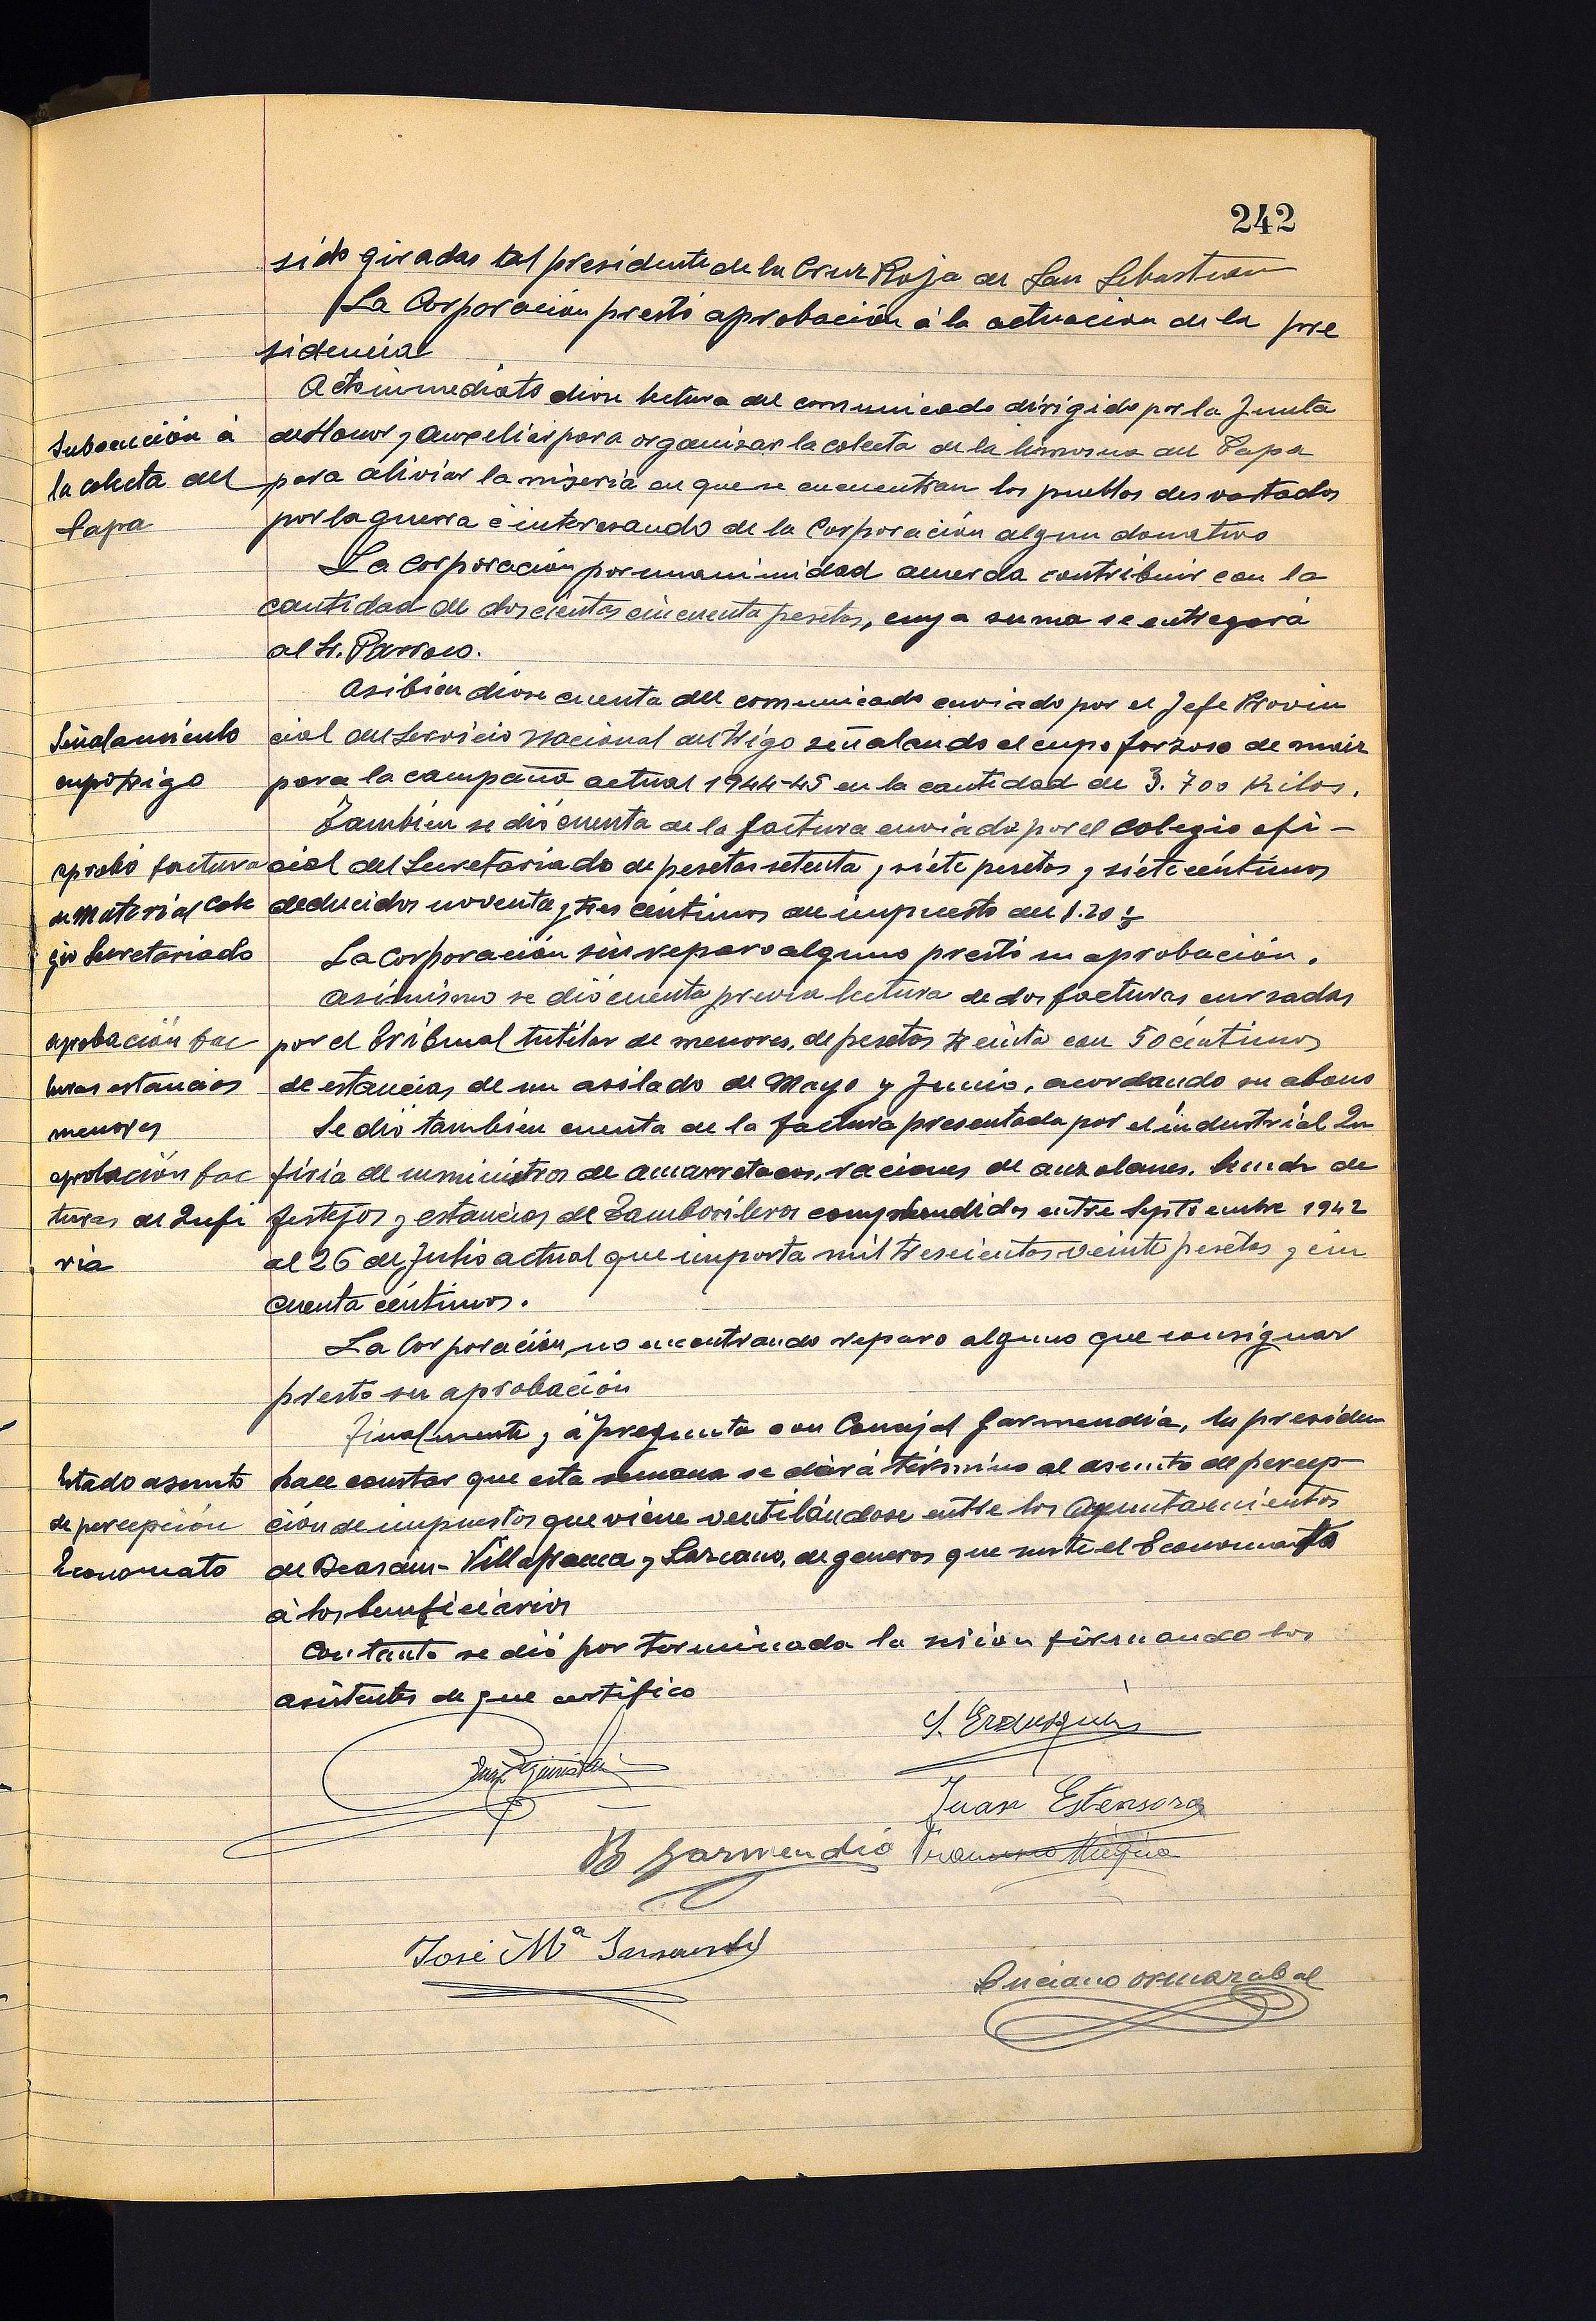 242
sido giradas tal presidente de la Cruz Roja de San Sebastian
La Corporación prestó aprobación á la actuacion de la pre
sidencia
Acto inmediato diose lectura del comunicado dirigido por la Junta
Suboención á
la colecta del
Papa
de Honor y Auxeliar para organizar la colecta de la limosna del Papa
para aliviar la miseria en que se encuentran los pueblos desvastados
por la guerra é interesando de la Corporación algun donativo
La Corporación por unanimidad acuerda contribuir con la
cantidad de doscientas cincuenta pesetas, cuya suma se entregará
al Sr. Párroco.
Asibien diose cuenta del comunicado enviado por el Jefe Provin
Señalamiento
cupo trigo
cial del Servicio Nacional del Trigo señalando el cupo forzoso de maiz
para la campaña actual 1944-45 en la cantidad de 3.700 Kilos.
También se dió cuenta de la factura enviada por el Colegio ofi-
aprobó factura
de Material Cole
gio Secretariado
cial del Secretariado de pesetas setenta y siete pesetas y siete céntimos
deducidos noventa y tres céntimos del impuesto del 1.20 %
La Corporación sin reparo alguno prestó su aprobación.
Asimismo se dió cuenta previa lectura de dos facturas cursadas
aprobación fac
turas estancias
menores
por el Tribunal tutelar de menores, de pesetas treinta con 50 céntimos
de estancias de un asilado de Mayo y Junio, acordando su abono
Se dió también cuenta de la factura presentada por el industrial Zu
aprobación fac
turas de Zufi
ria
firia de suministros de amarretacos, raciones de auzolanes, de
festejos y estancias de Tamborileros comprhendidos entre Septiembre 1942
al 26 de Julio actual que importa mil trescientas veinte pesetas y cin
cuenta céntimos.
La Corporación, no encontrando reparo alguno que consignar
presto su aprobación
Finalmente y á pregunta del Concejal Garmendia, la presiden
Estado asunto
de percepción
Economato
hace constar que esta semana se dará término al asunto de percep-
ción de impuestos que viene ventilándose entre los Ayuntamientos
de Beasain-Villafranca y Lazcano, de generos que surte el Economato
á los beneficiarios
Con tanto se dió por terminada la sesion firmando los
asistentes de que certifico
Juan Estensoro
B Garmendia
Francisco Múgica
José Mª
Luciano Ormazabal